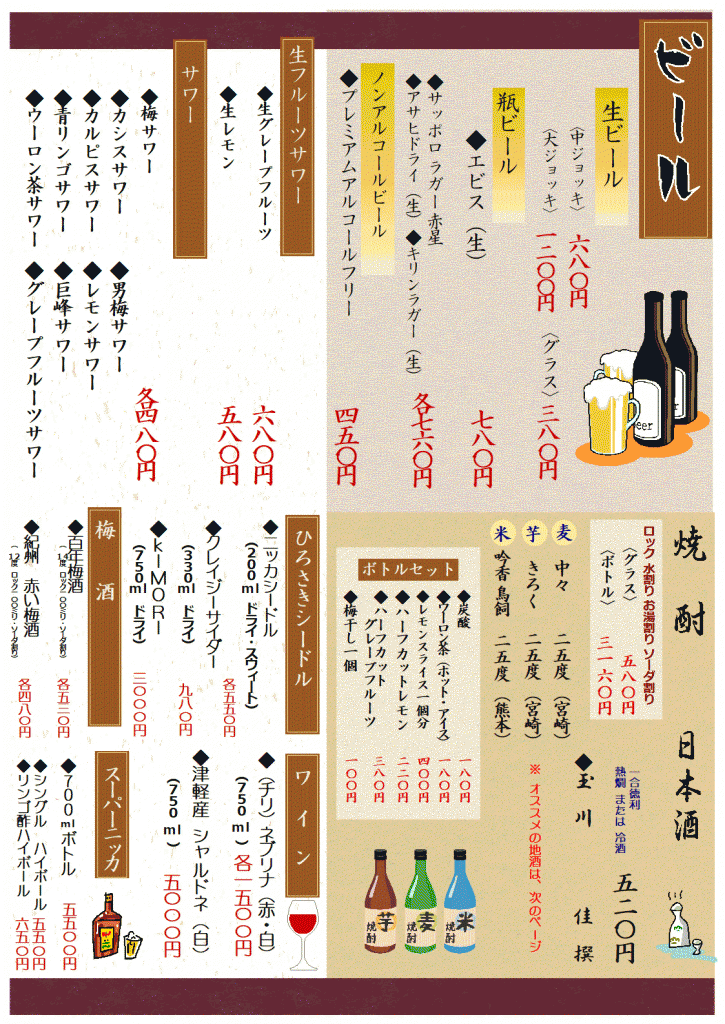 ビール
生ビール
〈中ジョッキ〉 六八〇円
〈大ジョッキ〉 一二〇〇円
〈グラス〉 三八〇円
瓶ビール
◆エビス（生） 七八〇円
◆サッポロ ラガー赤星
◆アサヒドライ（生） ◆キリンラガー（生） 各七六〇円
ノンアルコールビール
◆プレミアムアルコールフリー 四五〇円
生フルーツサワー
◆生グレープフルーツ 六八〇円
◆生レモン 五八〇円
サワー
◆梅サワー 各四八〇円
◆カシスサワー ◆男梅サワー
◆カルピスサワー ◆レモンサワー
◆青リンゴサワー ◆巨峰サワー
◆ウーロン茶サワー ◆グレープフルーツサワー
焼酎
ロック 水割り お湯割り ソーダ割り
〈グラス〉 五八〇円
〈ボトル〉 三一六〇円
麦 中々 二五度（宮崎）
芋 きろく 二五度（宮崎）
米 吟香鳥飼 二五度（熊本）
ボトルセット
◆炭酸 一八〇円
◆ウーロン茶（ホット・アイス） 一八〇円
◆レモンスライス一個分 四〇〇円
◆ハーフカットレモン 二二〇円
◆ハーフカット
グレープフルーツ 三八〇円
◆梅干し一個 一〇〇円
日本酒
一合徳利
熱燗 または 冷酒
◆玉川 佳撰 五二〇円
※ オススメの地酒は、次のページ
ひろさきシードル
◆ニッカシードル
（200ml ドライ・スウィート） 各五五〇円
◆クレイジーサイダー
（330ml ドライ） 九八〇円
◆kiMORI
（750ml ドライ） 三〇〇〇円
梅酒
◆百年梅酒
（14度 ロック一〇〇ミリ・ソーダ割り） 各五三〇円
◆紀州 赤い梅酒
（12度 ロック一〇〇ミリ・ソーダ割り） 各四八〇円
ワイン
◆（チリ）ネブリナ（赤・白）
（750ml） 各一五〇〇円
◆津軽産 シャルドネ（白）
（750ml） 五〇〇〇円
スーパーニッカ
◆700mlボトル 五五〇〇円
◆シングル ハイボール 五五〇円
◆リンゴ酢ハイボール 六五〇円
beer
芋
焼酎
麦
焼酎
米
焼酎